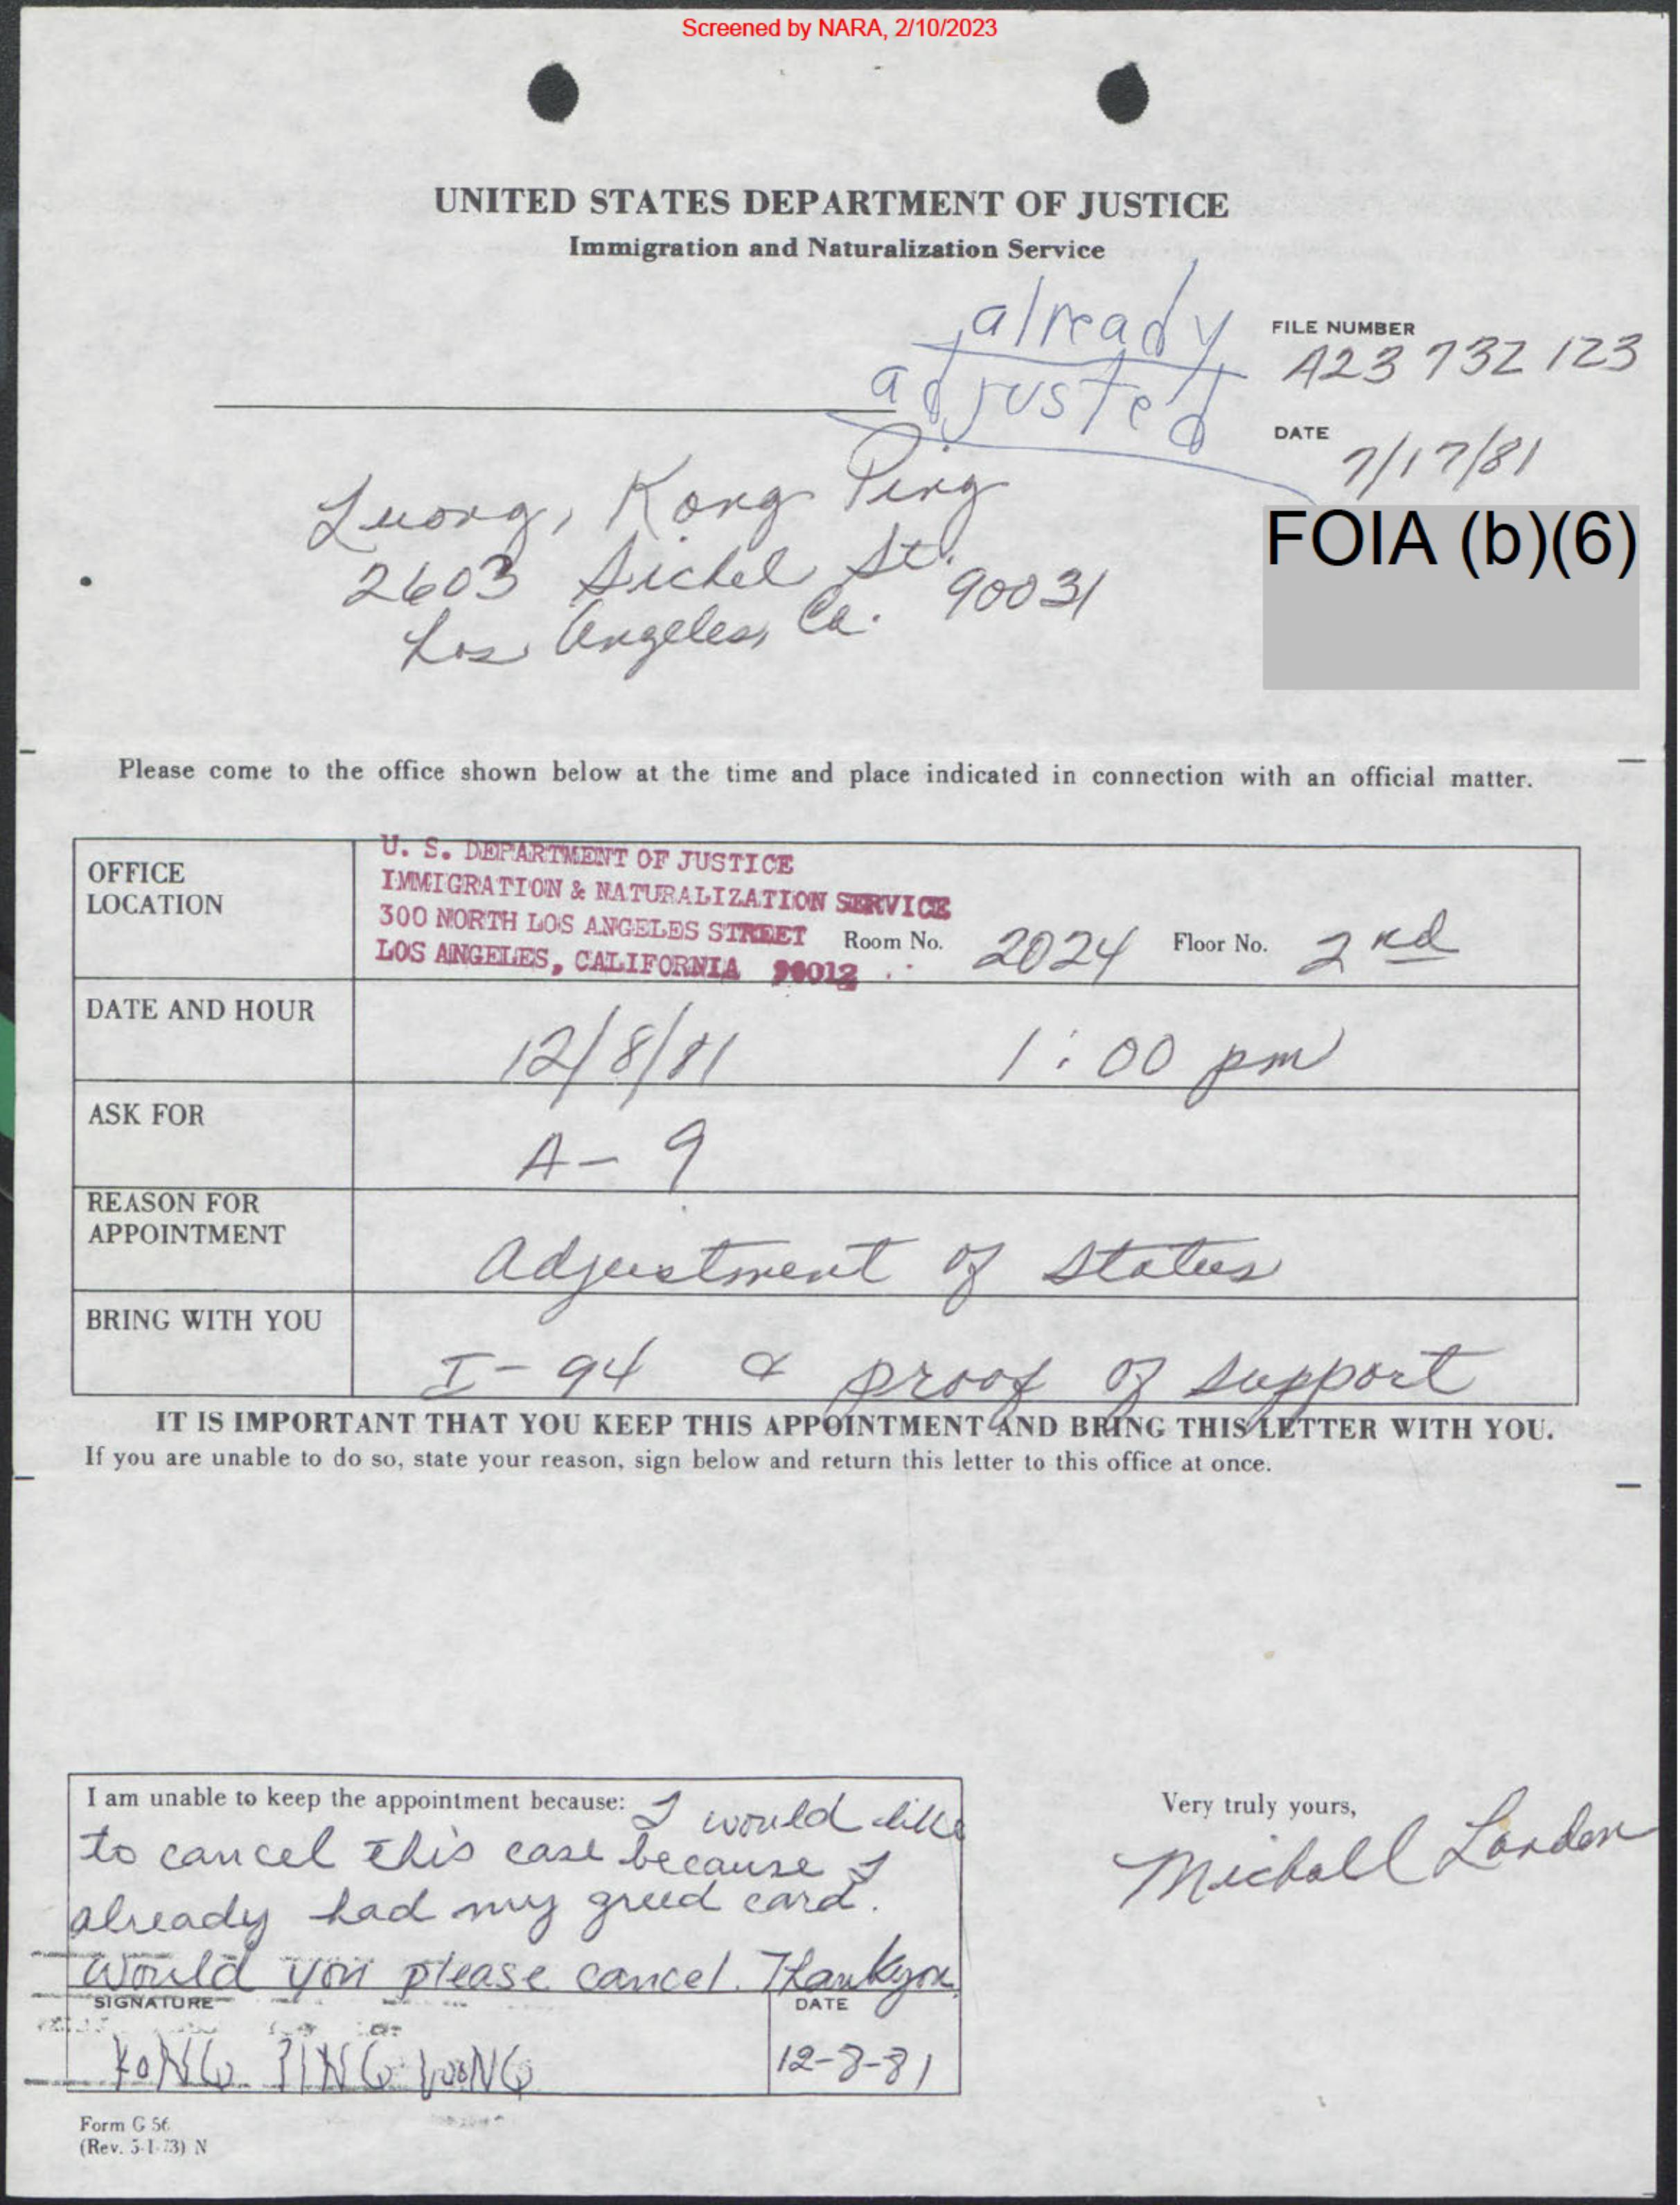 Screened by NARA, 2/10/2023
UNITED STATES DEPARTMENT OF JUSTICE
Immigration and Naturalization Service
already
adjusted
FILE NUMBER
A23 732 123
DATE
7/17/81
FOIA (b)(6)
Luong, Kong Ping
2603 Sichel St.
Los Angeles, Ca. 90031
Please come to the office shown below at the time and place indicated in connection with an official matter.
OFFICE
LOCATION
U. S. DEPARTMENT OF JUSTICE
IMMIGRATION & NATURALIZATION SERVICE
300 NORTH LOS ANGELES STREET
LOS ANGELES, CALIFORNIA 90012
Room No. 2024 Floor No. 2nd
DATE AND HOUR
12/8/81 1:00 pm
ASK FOR
A-9
REASON FOR
APPOINTMENT
Adjustment of Status
BRING WITH YOU
I-94 & proof of support
IT IS IMPORTANT THAT YOU KEEP THIS APPOINTMENT AND BRING THIS LETTER WITH YOU.
If you are unable to do so, state your reason, sign below and return this letter to this office at once.
I am unable to keep the appointment because: I would like
to cancel this case because I
already had my greed card.
Would you please cancel. Thankyou
SIGNATURE
DATE
KONG PING LUONG
12-8-81
Very truly yours,
Michall Landon
Form G 56
(Rev. 5-1-73) N